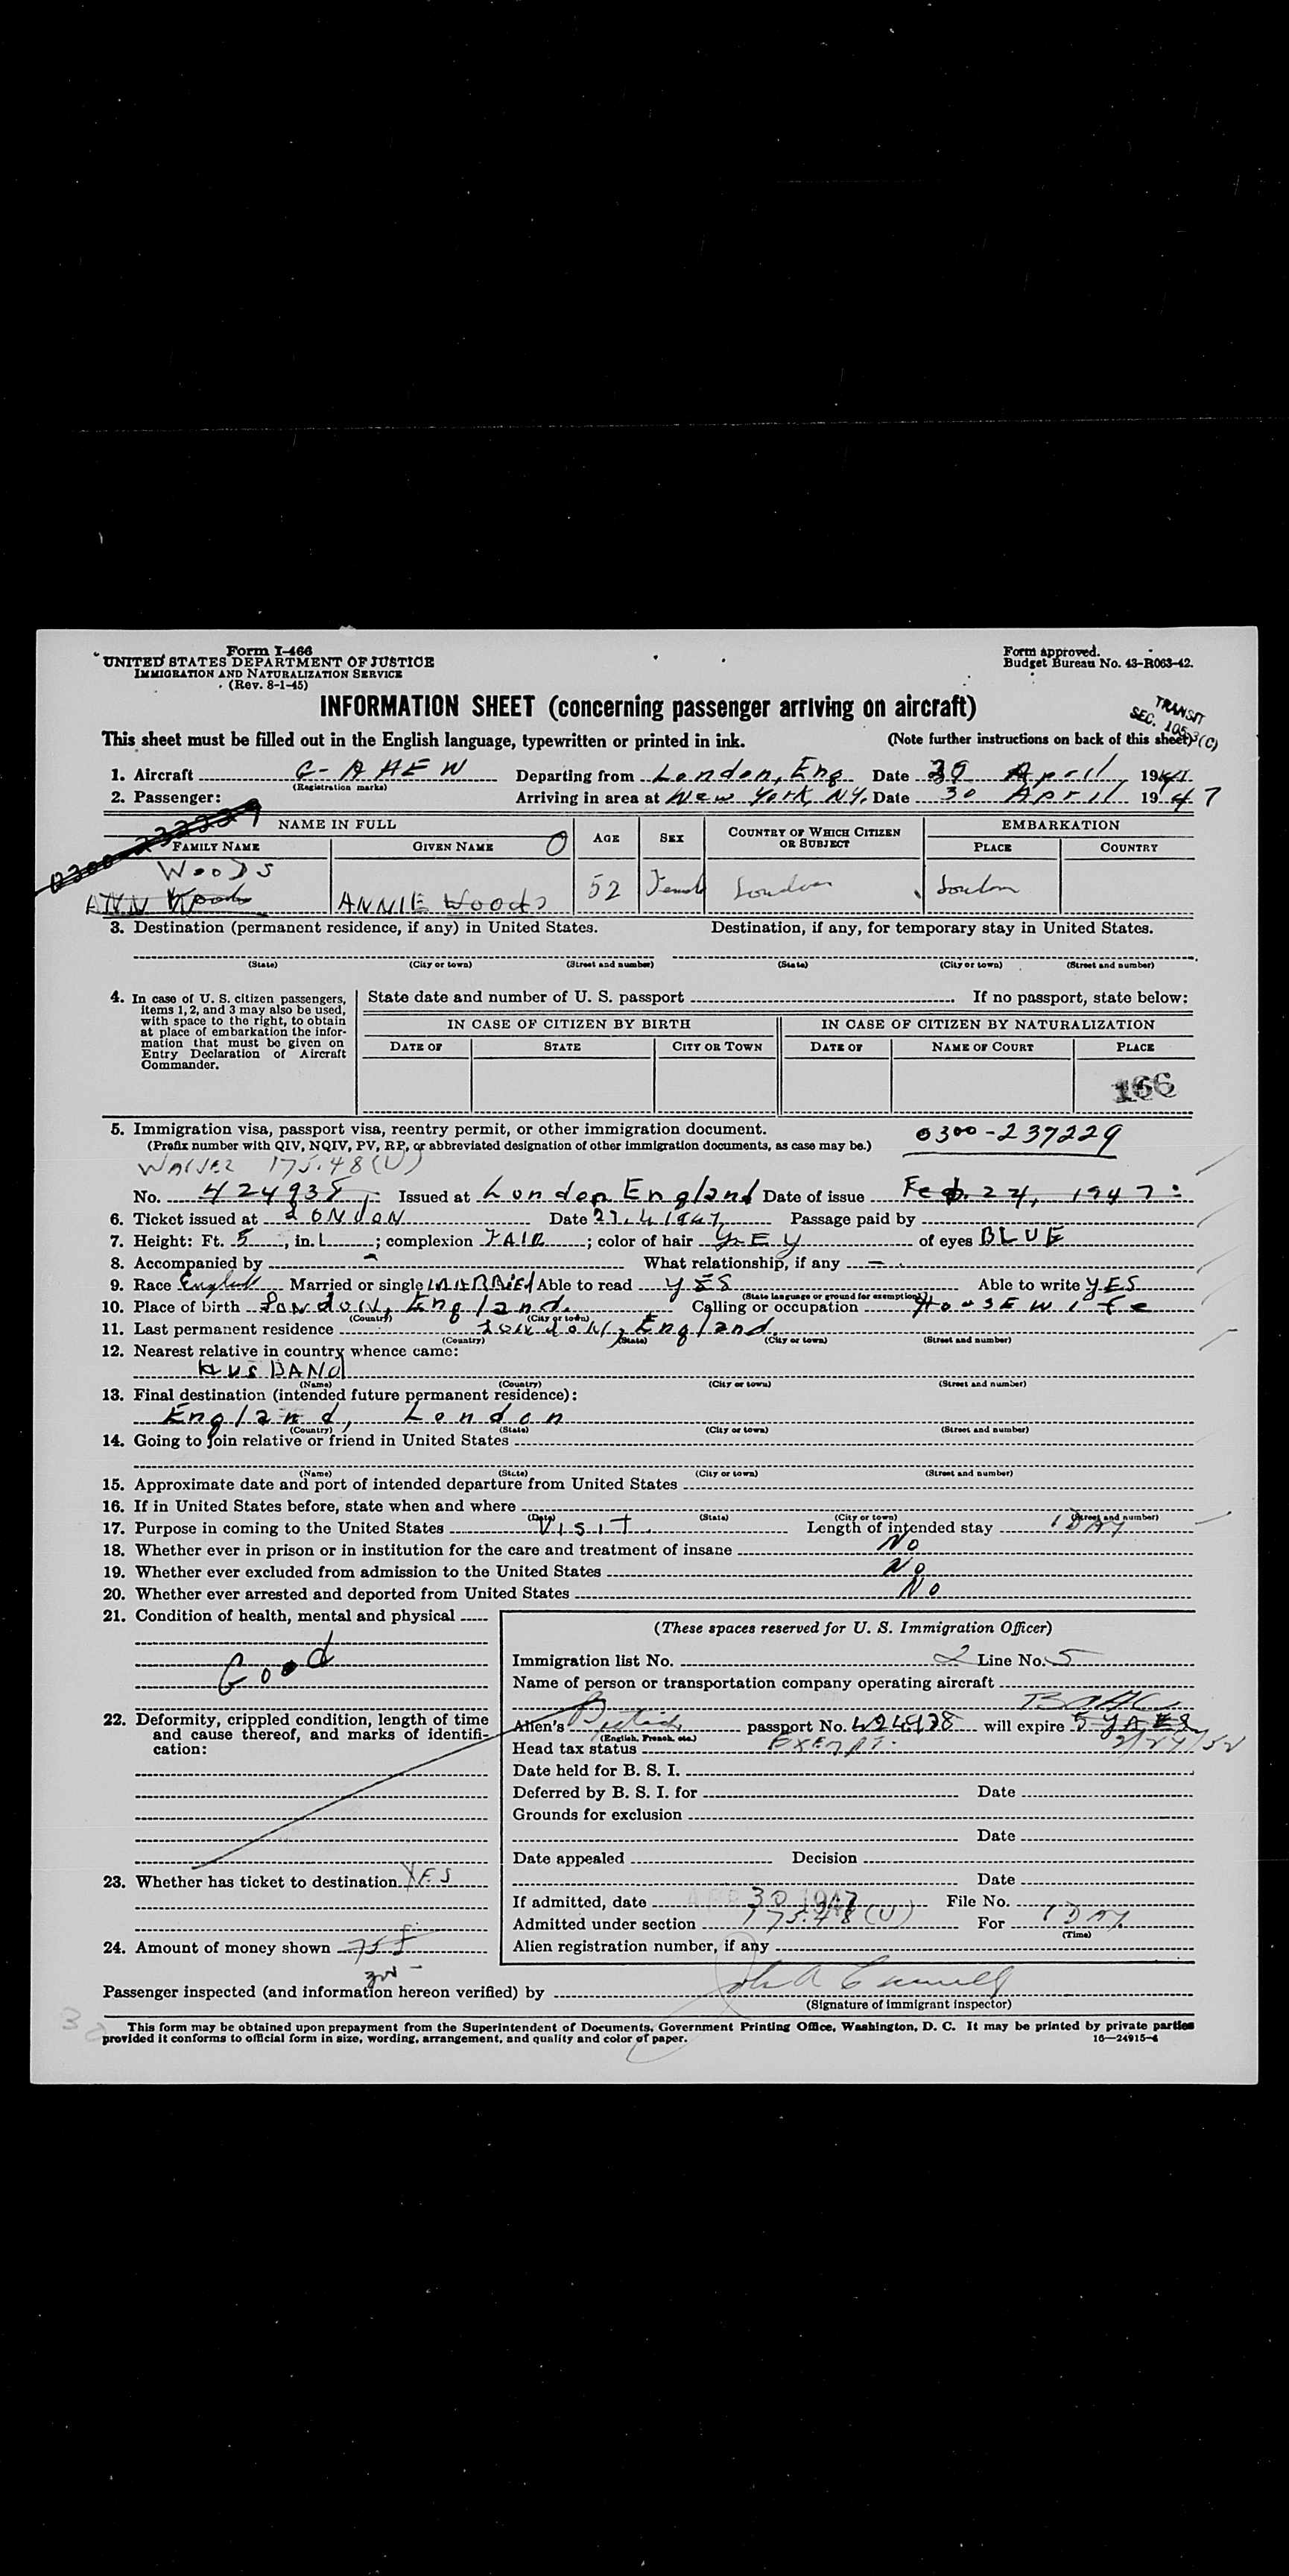 Form I-466
UNITED STATES DEPARTMENT OF JUSTICE
IMMIGRATION AND NATURALIZATION SERVICE
(Rev. 8-1-45)
Form approved.
Budget Bureau No. 43-R063-42.
INFORMATION SHEET (concerning passenger arriving on aircraft)
TRANSIT
SEC. 105.3(C)
This sheet must be filled out in the English language, typewritten or printed in ink. (Note further instructions on back of this sheet)
1. Aircraft G-AHEW Departing from London, Eng Date April 19
(Registration marks)
2. Passenger: Arriving in area at New York, NY. Date 30 April 1947
NAME IN FULL AGE SEX COUNTRY OF WHICH CITIZEN OR SUBJECT EMBARKATION
FAMILY NAME GIVEN NAME PLACE COUNTRY
Woods
ANN Woods ANNIE Woods 52 London London
3. Destination (permanent residence, if any) in United States. Destination, if any, for temporary stay in United States.
(State) (City or town) (Street and number) (State) (City or town) (Street and number)
4. In case of U. S. citizen passengers, items 1, 2, and 3 may also be used, with space to the right, to obtain at place of embarkation the information that must be given on Entry Declaration of Aircraft Commander.
State date and number of U. S. passport If no passport, state below:
IN CASE OF CITIZEN BY BIRTH IN CASE OF CITIZEN BY NATURALIZATION
DATE OF STATE CITY OR TOWN DATE OF NAME OF COURT PLACE
166
5. Immigration visa, passport visa, reentry permit, or other immigration document.
0300-237229
(Prefix number with QIV, NQIV, PV, RP, or abbreviated designation of other immigration documents, as case may be.)
Waiver 175.48(U)
No. 424938 Issued at London England Date of issue Feb. 24, 1947
6. Ticket issued at LONDON Date 27.4.1947 Passage paid by
7. Height: Ft. 5, in. 1; complexion FAIR; color of hair GREY of eyes BLUE
8. Accompanied by - What relationship, if any -
9. Race English Married or single MARRIED Able to read YES Able to write YES
(State language or ground for exemption)
10. Place of birth London, England. Calling or occupation HOUSEWIFE
(Country) (City or town)
11. Last permanent residence London, England
(Country) (State) (City or town) (Street and number)
12. Nearest relative in country whence came:
HUSBAND
(Name) (Country) (City or town) (Street and number)
13. Final destination (intended future permanent residence):
England, London
(Country) (State) (City or town) (Street and number)
14. Going to join relative or friend in United States
(Name) (State) (City or town) (Street and number)
15. Approximate date and port of intended departure from United States
16. If in United States before, state when and where
(Date) (State) (City or town) (Street and number)
17. Purpose in coming to the United States VISIT Length of intended stay 1 DAY
18. Whether ever in prison or in institution for the care and treatment of insane No
19. Whether ever excluded from admission to the United States No
20. Whether ever arrested and deported from United States No
21. Condition of health, mental and physical
Good
22. Deformity, crippled condition, length of time and cause thereof, and marks of identification:
23. Whether has ticket to destination YES
24. Amount of money shown 75
(These spaces reserved for U. S. Immigration Officer)
Immigration list No. 2 Line No. 5
Name of person or transportation company operating aircraft
BOAC
Alien's British passport No. will expire 5 YEARS
(English, French, etc.)
2/24/52
Head tax status EXEMPT.
Date held for B. S. I.
Deferred by B. S. I. for Date
Grounds for exclusion
Date
Date appealed Decision
Date
If admitted, date APR 30 1947 File No.
Admitted under section 175.48(U) For 1 DAY
(Time)
Alien registration number, if any
Passenger inspected (and information hereon verified) by John A
(Signature of immigrant inspector)
This form may be obtained upon prepayment from the Superintendent of Documents, Government Printing Office, Washington, D. C. It may be printed by private parties
provided it conforms to official form in size, wording, arrangement, and quality and color of paper. 16—24915-4